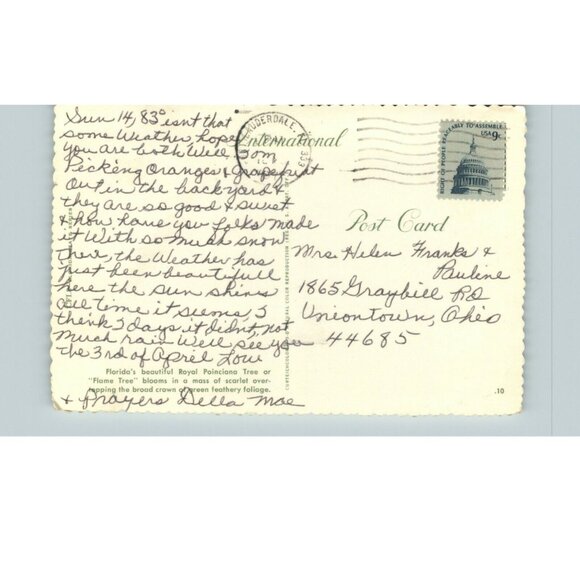 Sun 14, 83° isnt that
some Weather hope
you are both Well Dom
Picking Oranges & Grapefruit
Out in the backyard &
they are so good & sweet
& how have you folks made
it With so much snow
there, the Weather has
just been beautifull
here the sun shines
all time it seems, I
think 3 days it didnt, not
much rain Well see you
the 3rd of April Love
& Prayers Della Mae
Florida's beautiful Royal Poinciana Tree or
"Flame Tree" blooms in a mass of scarlet over-
topping the broad crown of green feathery foliage.
International
Post Card
RIGHT OF PEOPLE PEACEABLY TO ASSEMBLE
USA 9c
Mrs. Helen Franks &
Pauline
1865 Graybill RD
Uniontown, Ohio
44685
.10